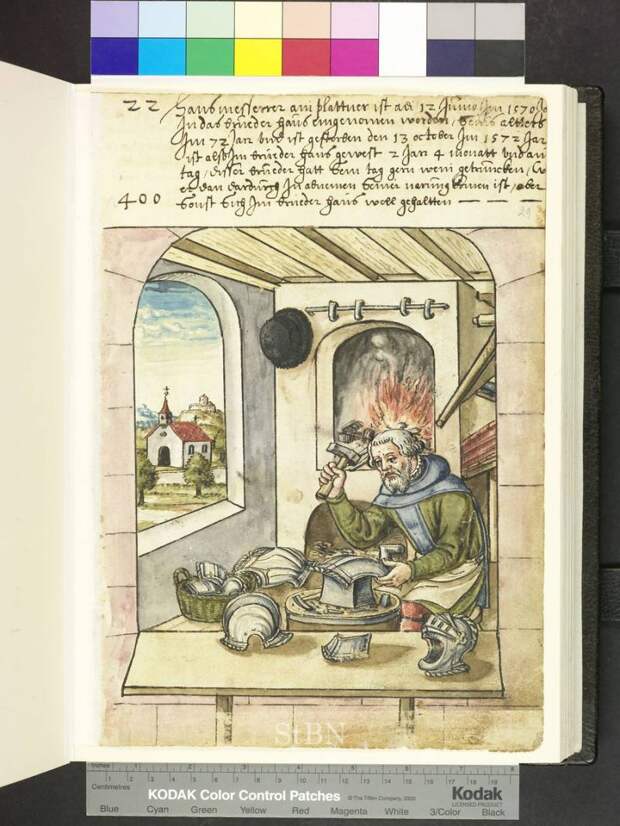 22 Hans messerrer ain plattner ist adi 12 Junio Im 1570 Ja
In das brueder haus eingenomen worden / seins altters
Im 72 Jar Und ist gestorben den 13 october Im 1572 Jar
ist also Im brueder haus gewest 2 Jar 4 monatt und ain
tag / disser brueder hatt sein tag gern wein getruncken /
er dan dardurch In abnemen seiner narung kumen ist / aber
400 sonst sich Im brueder haus woll gehaltten — — —
29
StBN
Inches 1 2 3 4 5 6 7 8
Centimetres 1 2 3 4 5 6 7 8 9 10 11 12 13 14 15 16 17 18 19
KODAK Color Control Patches © The Tiffen Company, 2000 Kodak
LICENSED PRODUCT
Blue Cyan Green Yellow Red Magenta White 3/Color Black